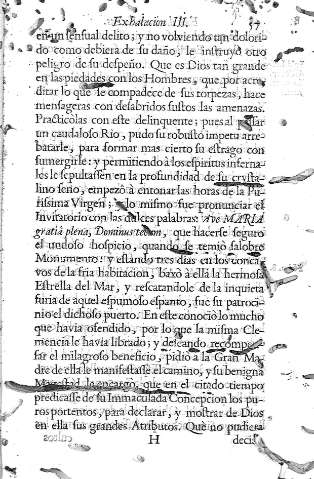 Exhalacion III. 57
en un sensual delito; y no volviendo tan dolorido
como debiera de su daño, le instruyó otro
peligro de su despeño. Que es Dios tan grande
en las piedades con los Hombres, que por acreditar
lo que se compadece de sus torpezas, hace
mensageras con desabridos sustos las amenazas.
Practicólas con este delinquente; pues al passar
un caudaloso Río, pudo su robusto impetu arrebatarle,
para formar mas cierto su estrago con
sumergirle: y permitiendo à los espiritus infernales
le sepultassen en la profundidad de su crystalino
seno, empezó à entonar las horas de la Purissima
Virgen; y lo mismo fue pronunciar el
Invitatorio con las dulces palabras: Ave MARIA
gratiâ plena, Dominus tecum, que hacerse seguro
el undoso hospicio, quando se temiò salobre
Monumento: y estando tres dias en los concavos
de la fria habitacion, baxò à ella la hermosa
Estrella del Mar, y rescatandole de la inquieta
furia de aquel espumoso espanto, fue su patrocinio
el dichoso puerto. En este conociò lo mucho
que havia ofendido, por lo que la misma Clemencia
le havia librado; y deseando recompensar
el milagroso beneficio, pidiò à la Gran Madre
de ella le manifestasse el camino, y su benigna
Magestad le encargò, que en el citado tiempo
predicasse de su Inmaculada Concepcion los puros
portentos, para declarar, y mostrar de Dios
en ella sus grandes Atributos. Què no pudiera
H decir